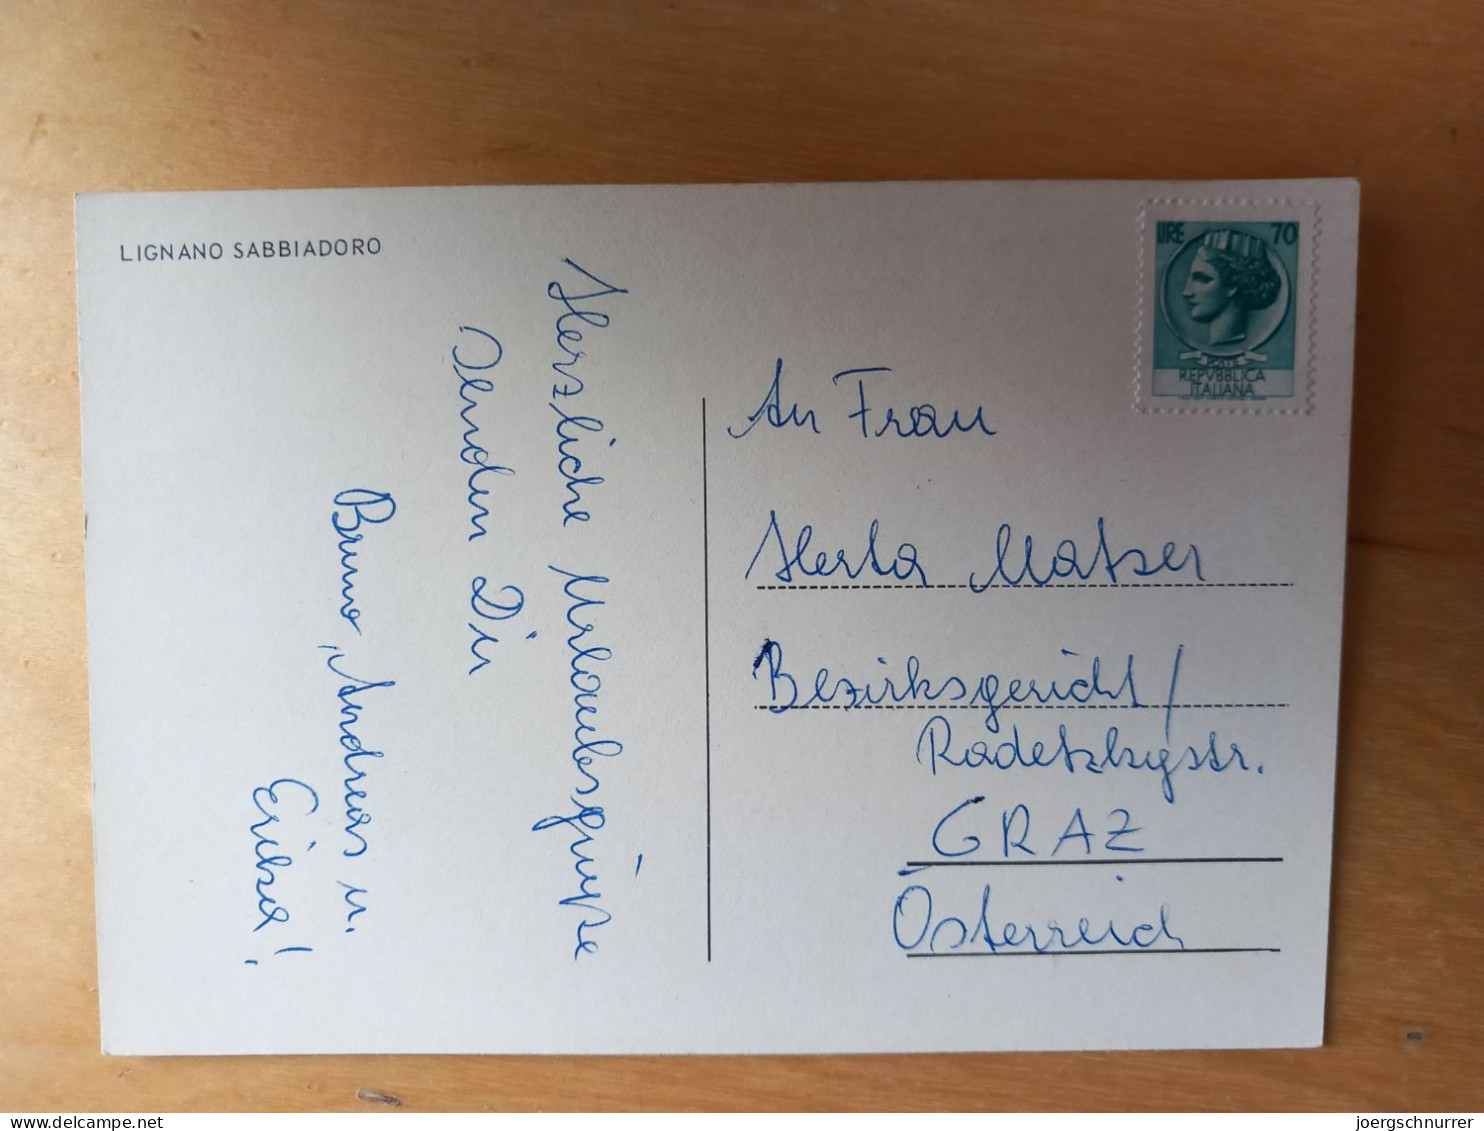 LIGNANO SABBIADORO
LIRE 70
POSTE
REPVBBLICA
ITALIANA
Herzliche Urlaubsgrüße
senden Dir
Bruno, Andreas u.
Erika!
An Frau
Herta Matzer
Bezirksgericht/
Radetzkystr.
GRAZ
Österreich
www.delcampe.net
joergschnurrer